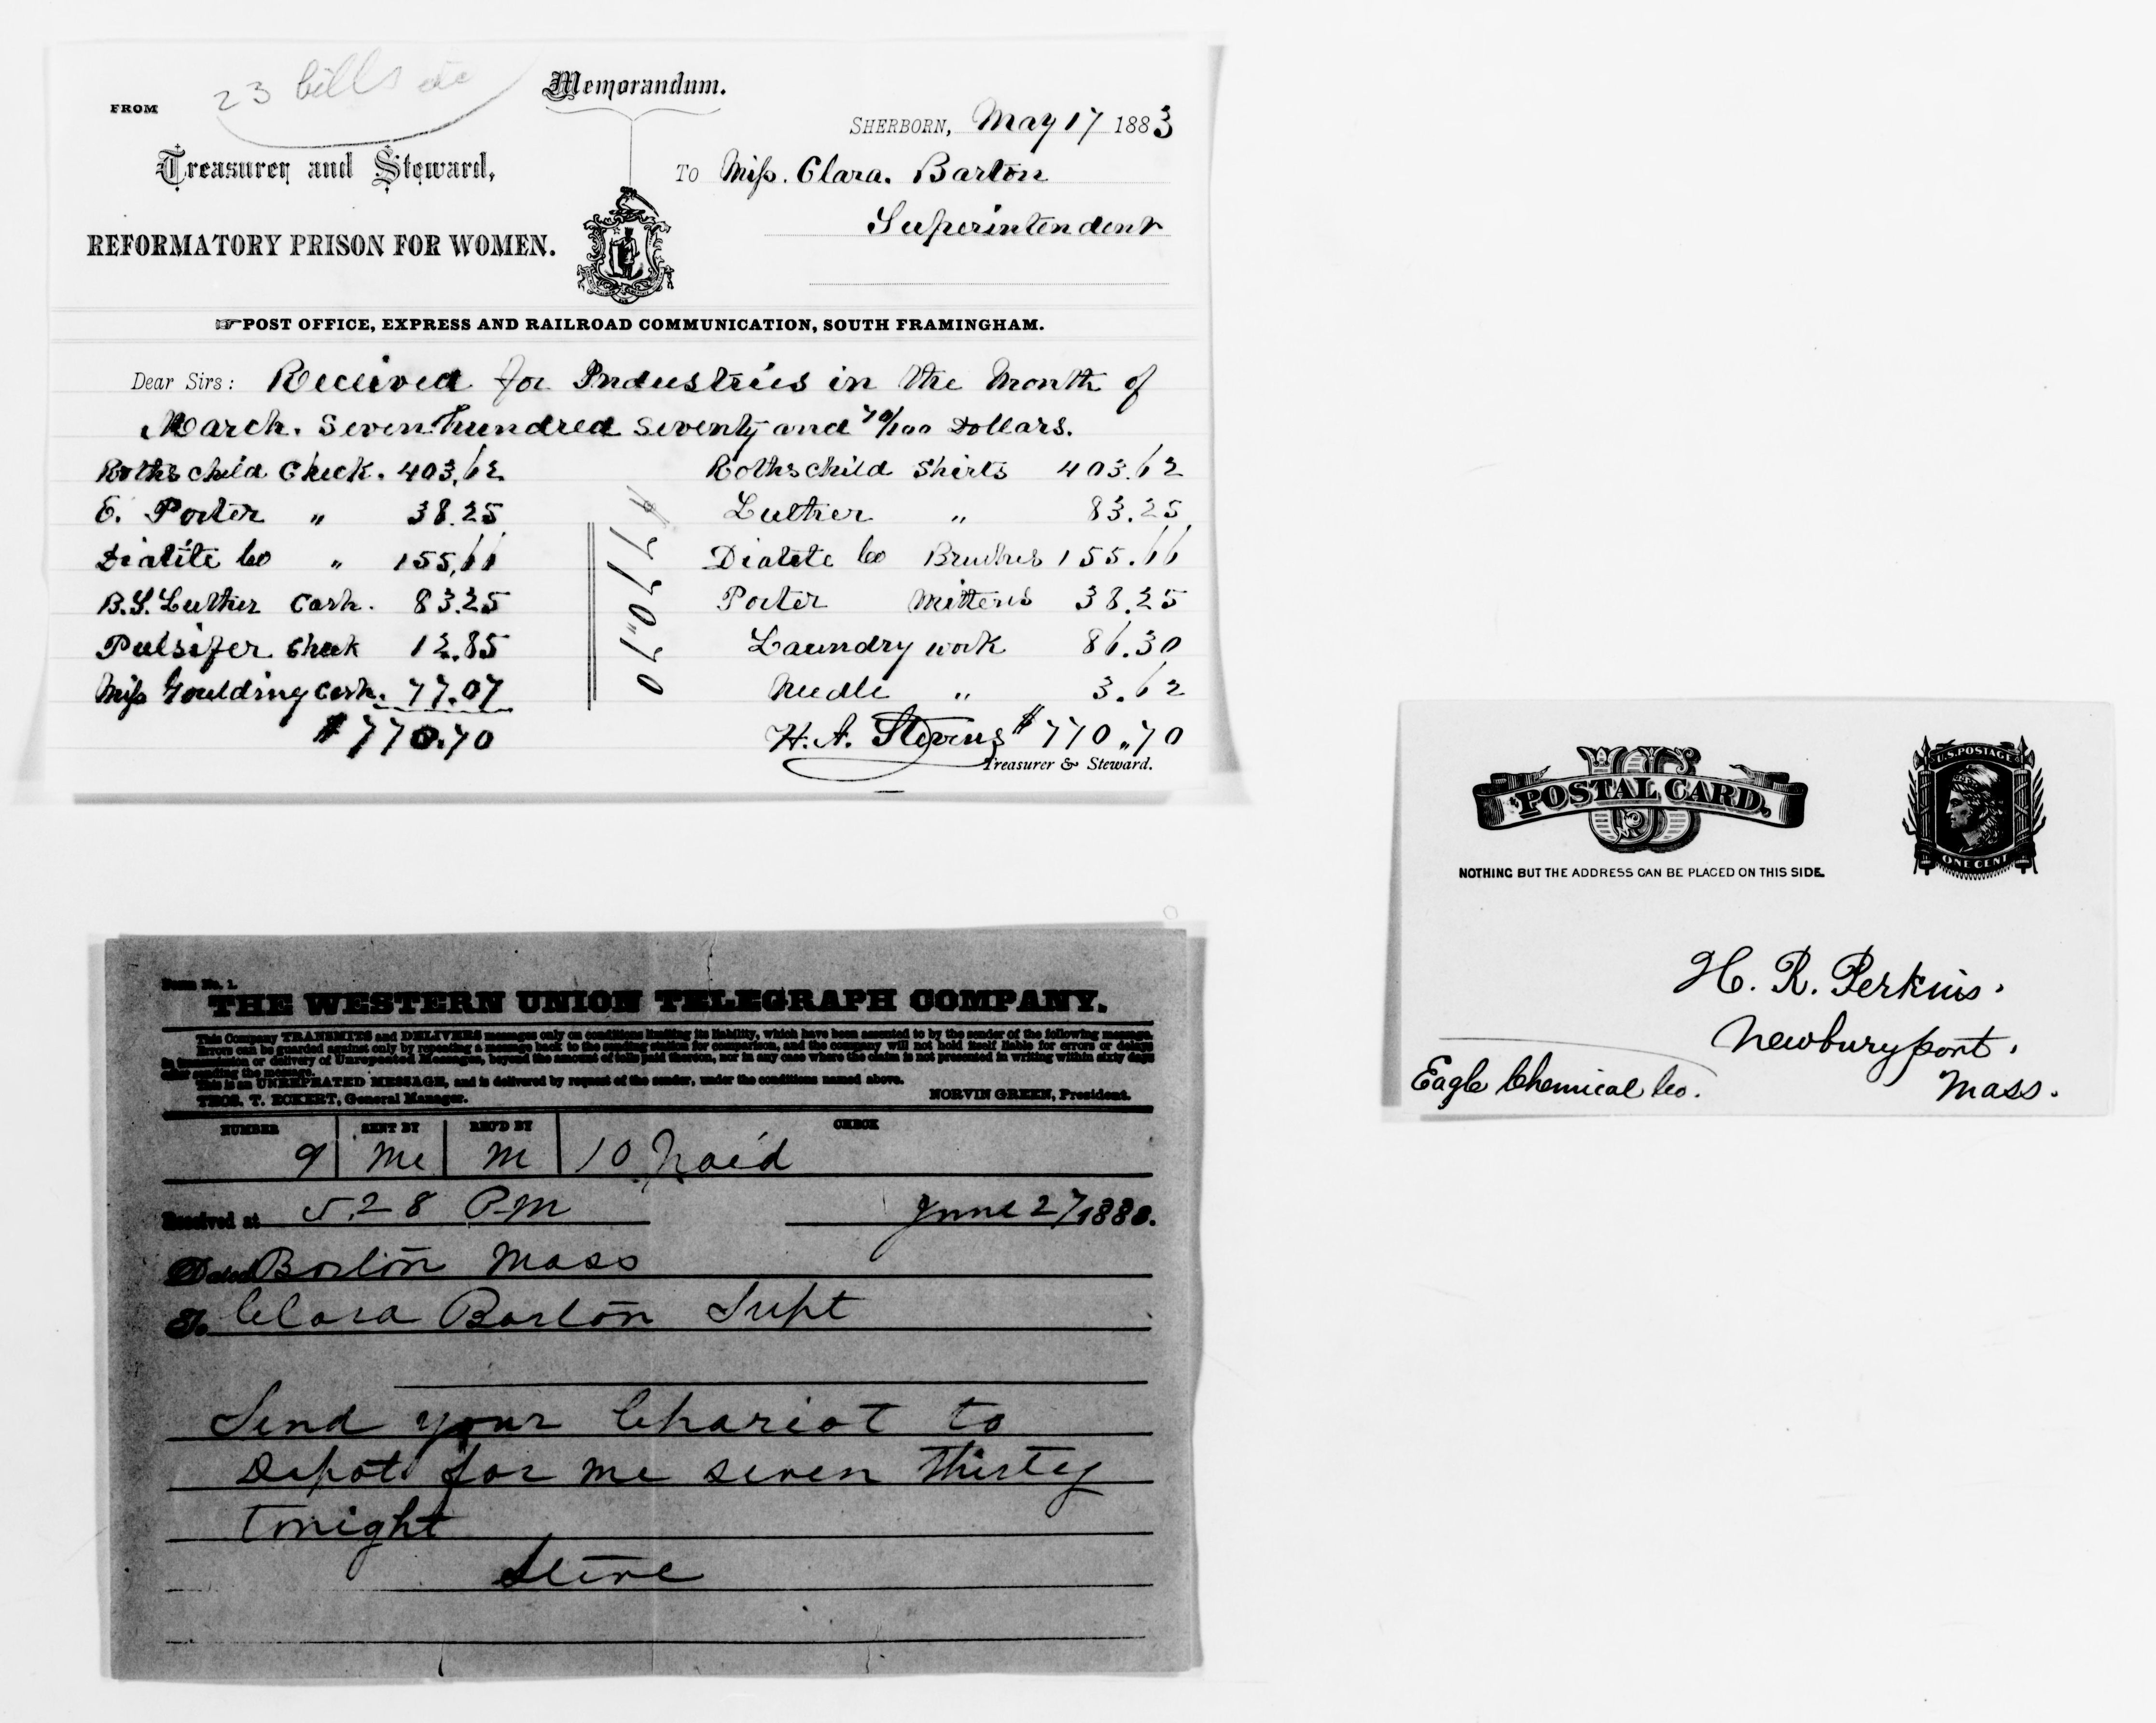 23 bills etc
Memorandum.
FROM
SHERBORN, May 17 1883
Treasurer and Steward,
To Miss. Clara. Barton
Superintendent
REFORMATORY PRISON FOR WOMEN.
☞POST OFFICE, EXPRESS AND RAILROAD COMMUNICATION, SOUTH FRAMINGHAM.
Dear Sirs: Received for Industries in the Month of
March. Seven hundred seventy and 70/100 Dollars.
Rothschild Check. 403,62
E. Porter " 38.25
Diatite Co " 155,66
B.S. Luther Cash. 83.25
Pulsifer Check 12.85
Miss Goulding Cash. 77.07
$770.70
$770.70
Rothschild Shirts 403.62
Luther " 83.25
Diatite Co Brushes 155.66
Porter Mittens 38.25
Laundry work 86.30
Needle " 3.62
H. A. Stevens $770.70
Treasurer & Steward.
Form No. 1.
THE WESTERN UNION TELEGRAPH COMPANY.
This Company TRANSMITS and DELIVERS messages only on conditions limiting its liability, which have been assented to by the sender of the following message.
Errors can be guarded against only by repeating a message back to the sending station for comparison, and the company will not hold itself liable for errors or delays
in transmission or delivery of Unrepeated Messages, beyond the amount of tolls paid thereon, nor in any case where the claim is not presented in writing within sixty days
after sending the message.
This is an UNREPEATED MESSAGE, and is delivered by request of the sender, under the conditions named above.
THOS. T. ECKERT, General Manager. NORVIN GREEN, President.
NUMBER SENT BY REC'D BY CHECK
9 Mc M 10 Paid
Received at 5.28 PM June 27 188
Dated Boston Mass
To Clara Barton Supt
Send your Chariot to
Depot for me seven thirty
tonight
Steve
US
POSTAL CARD.
NOTHING BUT THE ADDRESS CAN BE PLACED ON THIS SIDE.
U.S. POSTAGE
ONE CENT
H. R. Perkins.
Newburyport.
Mass.
Eagle Chemical Co.